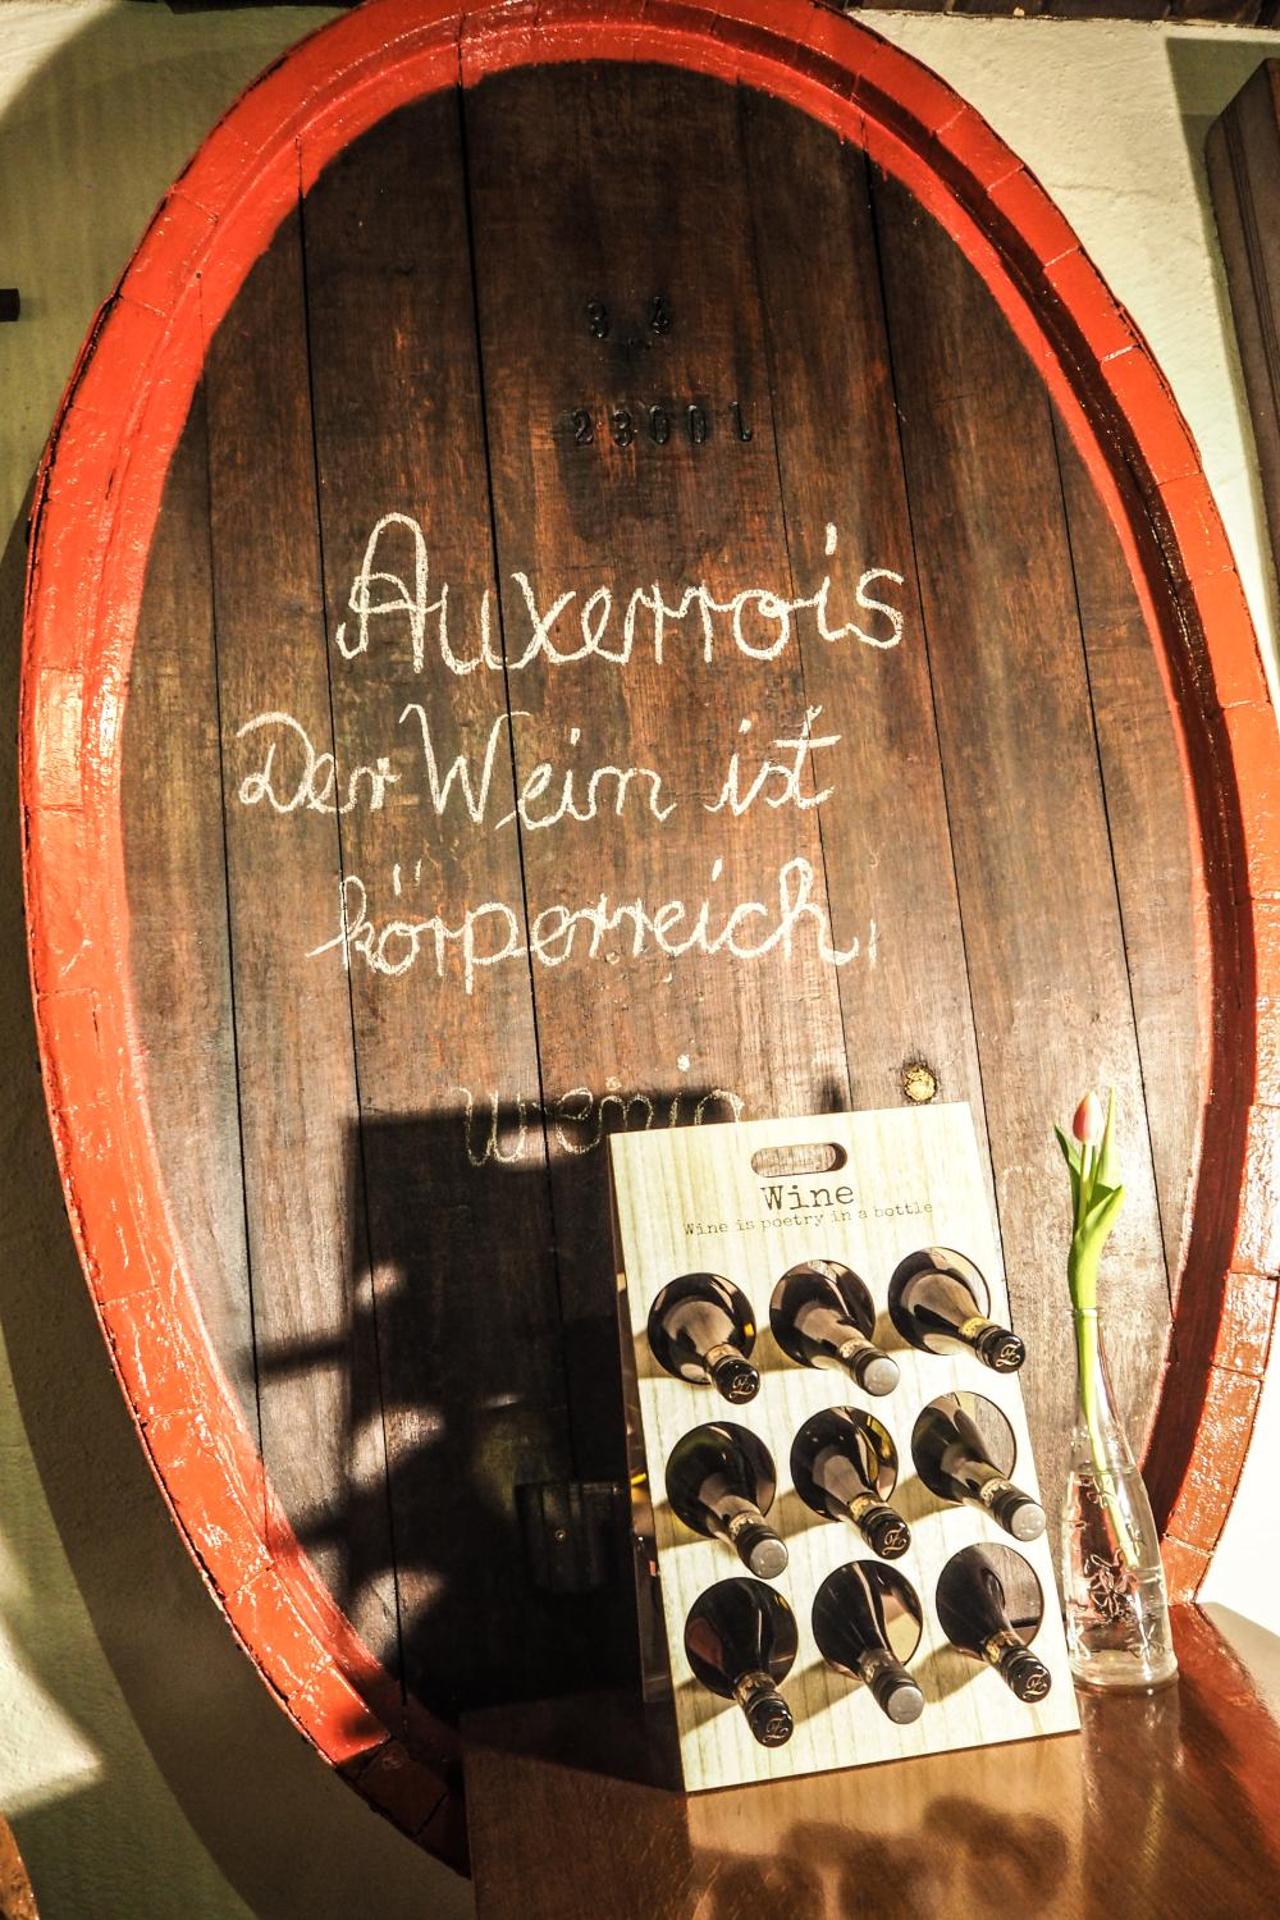 3 4
2300 l
Auxerrois
Der Wein ist
körperreich,
wenig
Wine
Wine is poetry in a bottle